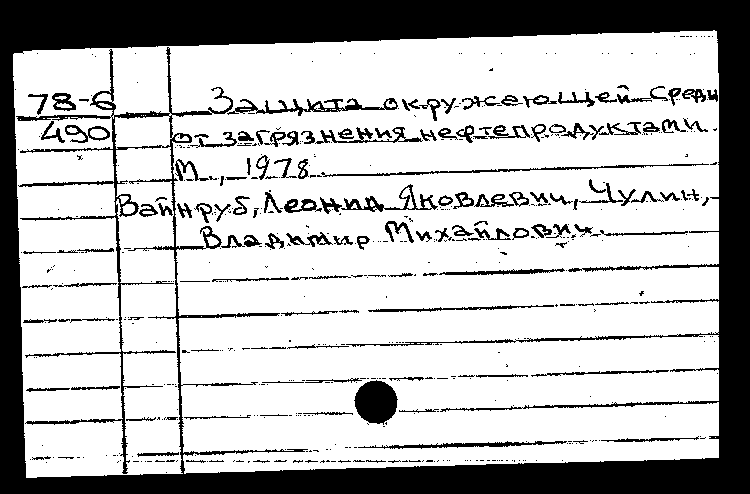 78-6 Защита окружающей среды
490 от загрязнения нефтепродуктами.
М., 1978.
Вайнруб, Леонид Яковлевич, Чулин,
Владимир Михайлович.